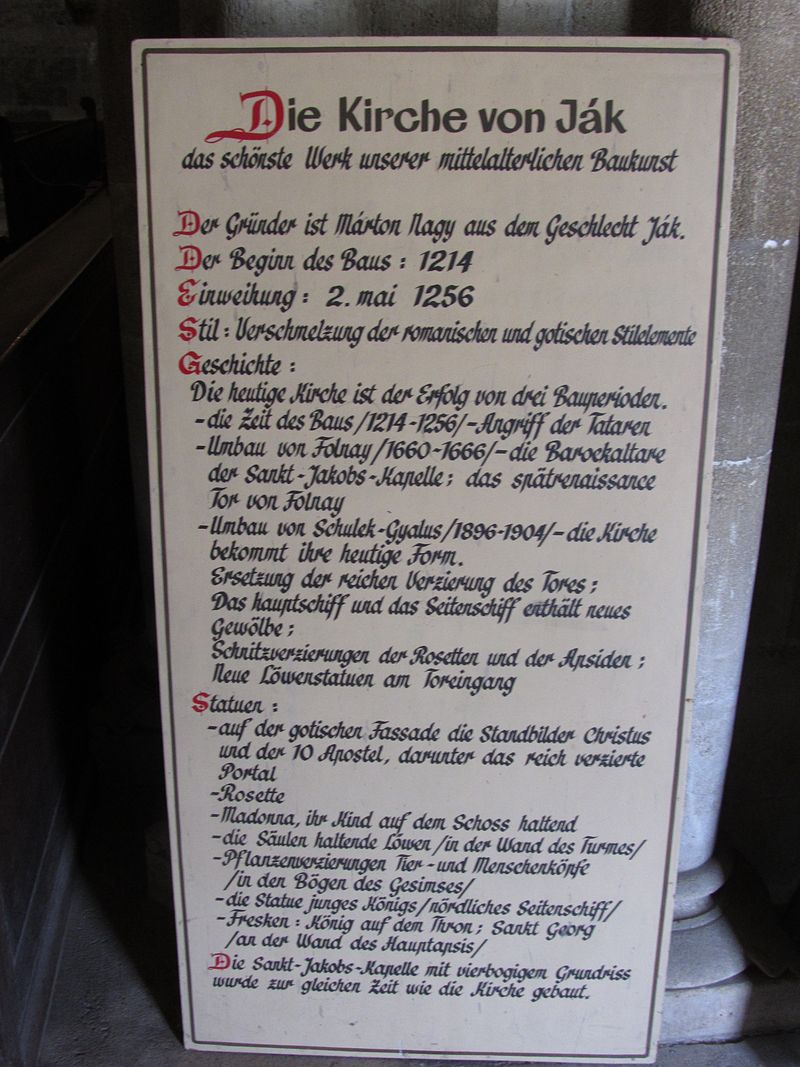 Die Kirche von Ják
das schönste Werk unserer mittelalterlichen Baukunst
Der Gründer ist Márton Nagy aus dem Geschlecht Ják.
Der Beginn des Baus : 1214
Einweihung : 2. mai 1256
Stil : Verschmelzung der romanischen und gotischen Stilelemente
Geschichte :
Die heutige Kirche ist der Erfolg von drei Bauperioden.
-die Zeit des Baus /1214-1256/-Angriff der Tataren
-Umbau von Folnay /1660-1666/-die Barockaltare
der Sankt-Jakobs-Kapelle ; das spätrenaissance
Tor von Folnay
-Umbau von Schulek-Gyalus /1896-1904/-die Kirche
bekommt ihre heutige Form.
Ersetzung der reichen Verzierung des Tores ;
Das hauptschiff und das Seitenschiff enthält neues
Gewölbe ;
Schnitzverzierungen der Rosetten und der Apsiden ;
Neue Löwenstatuen am Toreingang
Statuen :
-auf der gotischen Fassade die Standbilder Christus
und der 10 Apostel, darunter das reich verzierte
Portal
-Rosette
-Madonna, ihr Kind auf dem Schoss haltend
-die Säulen haltende Löwen /in der Wand des Turmes/
-Pflanzenverzierungen Tier-und Menschenköpfe
/in den Bögen des Gesimses/
-die Statue junges Königs /nördliches Seitenschiff/
-Fresken : König auf dem Thron ; Sankt Georg
/an der Wand des Hauptapsis/
Die Sankt-Jakobs-Kapelle mit vierbogigem Grundriss
wurde zur gleichen Zeit wie die Kirche gebaut.